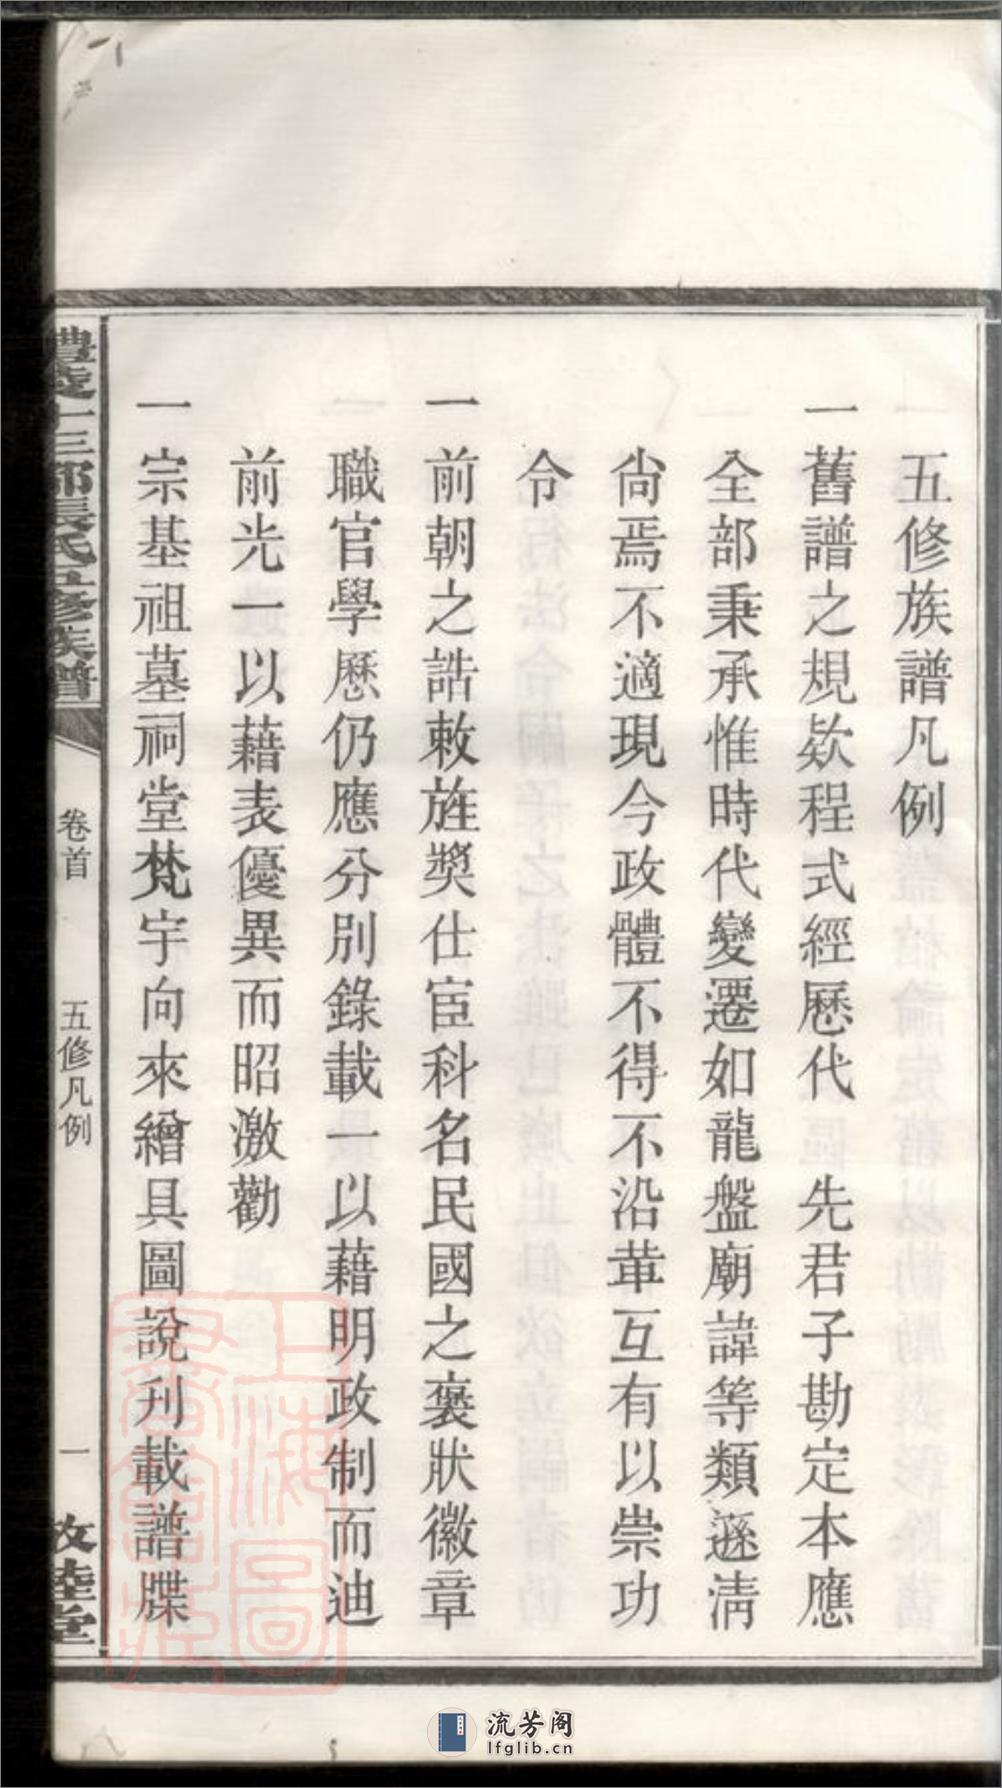 五修族譜凡例
一舊譜之規欵程式經歷代　先君子勘定本應
全部秉承惟時代變遷如龍盤廟諱等類遜淸
尙焉不適現今政體不得不沿革互有以崇功
令
一前朝之誥敕旌奬仕宦科名民國之褒狀徽章
職官學歷仍應分別錄載一以藉明政制而迪
前光一以藉表優異而昭激勸
一宗基祖墓祠堂梵宇向來繪具圖說刋載譜牒
醴陵十三都張氏五修族譜
卷首
五修凡例
一
敦睦堂
上海圖
書館藏
流芳阁
lfglib.cn